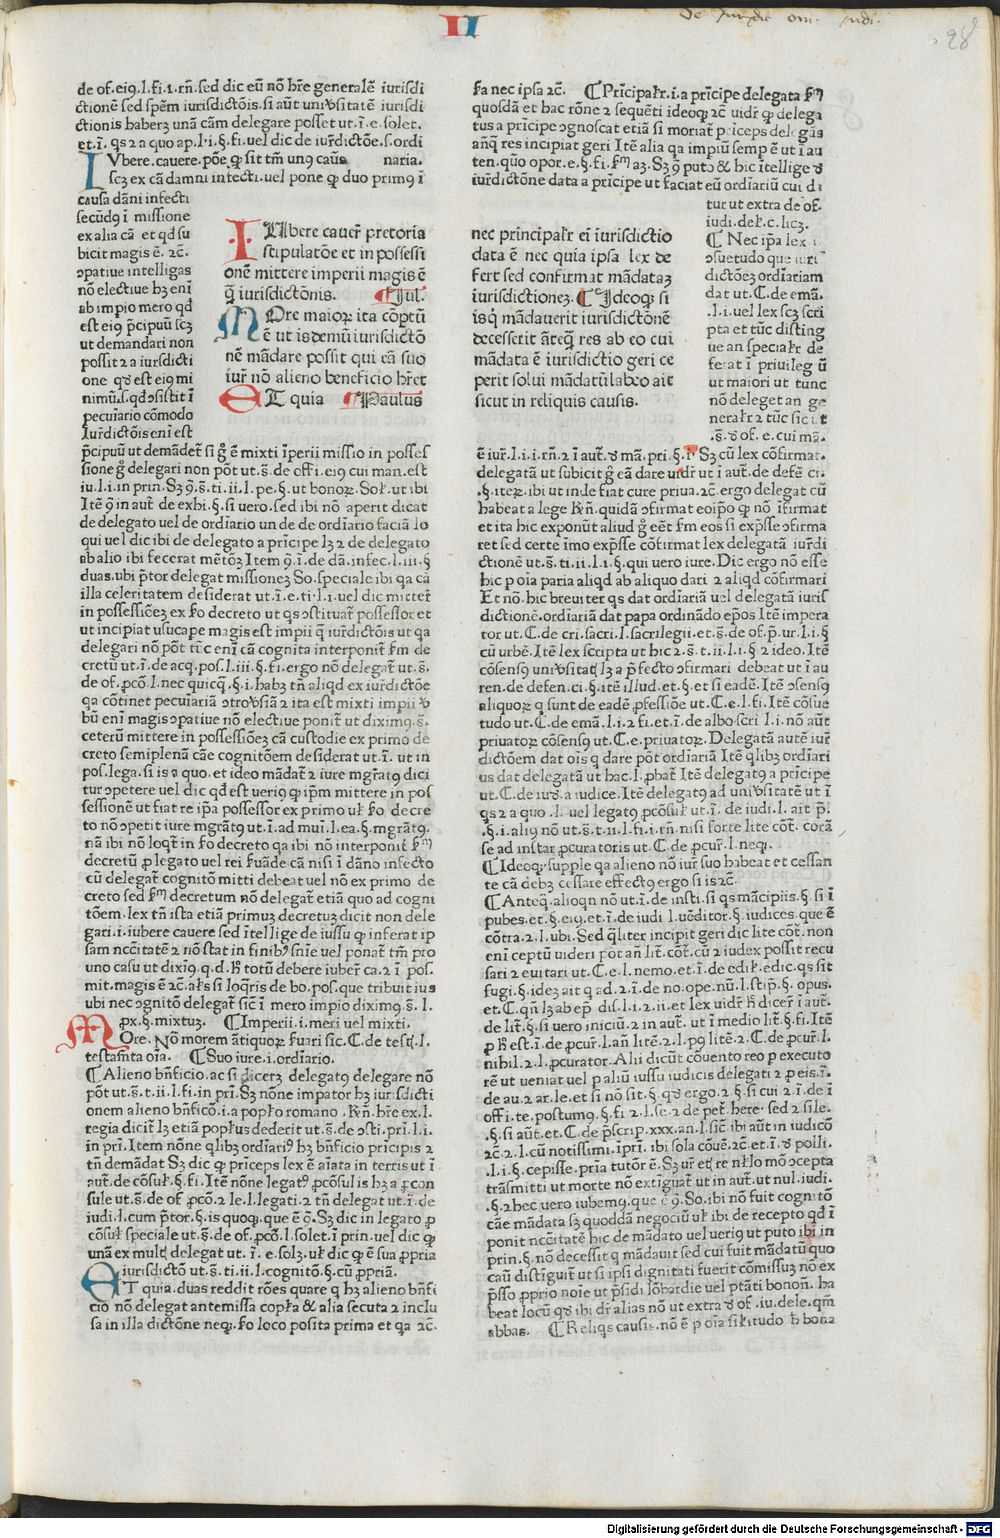 II
De Jurisdic om. iudi.
28
de of.eiꝰ.l.fi.i.rñ.sed dic eū nō hr̄e generalē iurisdi
ctionē sed spēm iurisdictōis.si aūt uniꝟsitatē iurisdi
ctionis haberꝫ unā cām delegare posset ut.ī.e.solet.
et.ī.qs 2 a quo ap.l.i.§.fi.uel dic de iur̄dictōe.s.ordi
IVbere.cauere.pōe ꝙ sit tm̄ unꝰ caūs naria.
scꝫ ex cā damni infecti.uel pone ꝙ duo primꝰ ī
causa dāni infecti
secūdꝰ ī missione
ex alia cā et qd̓ su
bicit magis ē. 2c̄.
ɔpatiue intelligas
nō electiue hꝫ enī
ab impio mero qd̓
est eiꝰ p̄cipuū scꝫ
ut demandari non
possit 2 a iurisdicti
one qd̓ est eiꝰ mi
nimū.s.qd̓ ɔsistit ī
pecuīario cōmodo
Iur̄dictōis enī est
IUbere cauer̄ pretoria
stipulatōe et in possessi
onē mittere imperii magis ē
q̄ iurisdictōnis. ¶Jul.
MOre maioꝝ ita cōptū
ē ut is demū iurisdictō
nē mādare possit qui eā suo
iur̄ nō alieno beneficio hr̄et
ET quia ¶Paulus
p̄cipuū ut demādet̄ si ḡ ē mixti īperii missio in posses
sione ḡ delegari non pōt ut.s̄.de offi.eiꝰ cui man.est
iu.l.i.in prin.Sꝫ ꝯ.s̄.ti.ii.l.pe.§.ut bonoꝝ.Sol̄.ut ibi
Itē ꝯ in aut̄ de exhi.§.si uero.sed ibi nō aperit dicat
de delegato uel de ordīario un de de ordīario faciā lo
qui uel dic ibi de delegato a prīcipe lꝫ 2 de delegato
ab alio ibi fecerat mētōꝫ Item ꝯ.ī.de dā.infec.l.iii.§
duas.ubi p̄tor delegat missioneꝫ So.speciale ibi qa cā
illa celeritatem desiderat ut.ī.e.ti.l.i.uel dic mitter̄
in possessiōeꝫ ex s̄o decreto ut qs ɔstituat̄ possessor et
ut incipiat usucape magis est impii q̄ iur̄dictōis ut qa
delegari nō pōt tr̄c enī cā cognita interponit s̄m de
cretū ut.ī.de acq.pos.l.iii.§.fi.ergo nō delegat̄ ut.s̄.
de of.ꝓcō.l.nec quicq̄.§.i.habꝫ tn̄ aliqd̓ ex iur̄dictōe
qa cōtinet pecuīariā ɔtrouꝟsiā 2 ita est mixti impii ꝟ
bū enī magis ɔpatiue nō electiue ponit̄ ut diximꝰ.s̄.
ceterū mittere in possessiōeꝫ cā custodie ex primo de
creto semiplenā cāe cognitōem desiderat ut.ī.ut in
pos.lega.si is a quo.et ideo mādat̄ 2 iure mgr̄atꝰ dici
tur ɔpetere uel dic qd̓ est uerīꝰ ꝙ ip̄m mittere in pos
sessionē ut fiat re ip̄a possessor ex primo ul̄ s̄o decre
to nō ɔpetit iure mgr̄atꝰ ut.ī.ad muī.l.ea.§.mgr̄atꝰ.
nā ibi nō loqt̄ in s̄o decreto qa ibi nō interponit̄ s̄m
decretū ꝓ legato uel rei s̄uāde cā nisi ī dāno infecto
cū delegat̄ cognitō mitti debeat uel nō ex primo de
creto sed s̄m decretum nō delegat̄ etiā quo ad cogni
tōem.lex tn̄ ista etiā primuꝫ decretuꝫ dicit non dele
gari.i.iubere cauere sed ītellige de iussu ꝙ inferat ip
sam nc̄citatē 2 nō stat in finibꝰ sn̄ie uel ponat̄ tm̄ pro
uno casu ut dixiꝰ q.d.h̄ totū debere iuber̄ ca.2 ī pos.
mit.magis ē 2c̄.al̄s si loq̄ris de bo.pos.que tribuit ius
ubi nec ɔgnitō delegat̄ sic̄ ī mero impio diximꝰ.s̄.l.
ꝓx.§.mixtuꝫ. ¶Imperii.i.meri uel mixti.
MOre.Nō morem ātiquoꝝ s̄uari sic.C.de testꝭ.l.
testam̄ta oīa. ¶Suo iure.i.ordīario.
¶Alieno bn̄ficio.ac si dicerꝫ delegatꝰ delegare nō
pōt ut.s̄.ti.ii.l.fi.in prī.Sꝫ nōne impator hꝫ iur̄sdicti
onem alieno bn̄ficō.i.a popl̄o romano.R̄n̄.hr̄e ex.l.
regia dicit̄ lꝫ etiā popl̄us dederit ut.s̄.de ɔsti.prī.l.i.
in prī.Item nōne qlibꝫ ordīariꝰ hꝫ bn̄ficio prīcipis 2
tn̄ demādat Sꝫ dic ꝙ prīceps lex ē aīata in terris ut ī
aut̄.de cōsul̄.§.fi.Itē nōne legatꝰ ꝓcōsul̄is hꝫ a ꝓcon
sule ut.s̄.de of ꝓcō.2 le.l.legati.2 tn̄ delegat ut.ī.de
iudi.l.cum p̄tor.§.is quoqꝫ.que ē ꝯ.Sꝫ dic in legato ꝓ
cōsul̄ speciale ut.s̄.de of.ꝓcō.l.solet.ī prin.uel dic ꝙ
unā ex multꝭ delegat ut.ī.e.solꝫ.ul̄ dic ꝙ ē sua ꝓpria
iurisdictō ut.s̄.ti.ii.l.cognitō.§.cū ꝓpriā.
ET quia.duas reddit rōes quare q hꝫ alieno bn̄fi
cio nō delegat antemissa copl̄a & alia secuta 2 inclu
sa in illa dictōne neqꝫ.s̄o loco posita prima et qa 2c̄.
s̄a nec ipsa 2c̄. ¶Prīcipal̄r.i.a prīcipe delegata s̄m
quosdā et hac rōne 2 sequēti ideoqꝫ 2c̄ uidr̄ ꝙ delega
tus a prīcipe ɔgnoscat etiā si moriat̄ p̄ceps delegās
anq̄ res incipiat geri Itē alia qa impiū semp ē ut ī au
ten.quō opor.e.§.fi.s̄m aꝫ.Sꝫ ꝯ puto & hic ītellige ꝟ
iur̄dictōne data a prīcipe ut faciat eū ordīariū cui di
tur ut extra de of.
iudi.del̄.c.licꝫ.
¶ Nec ip̄a lex .i.
ɔsuetudo que iuri
dictōeꝫ ordīariam
dat ut.C.de emā.
.l.i.uel lex scꝫ scri
pta et tūc disting
ue an special̄r de
ferat ī priuileg ū
ut maiori ut tunc
nō deleget an ge
neral̄r 2 tūc sic ut
.s̄.ꝟ of.e.cui mā.
nec principal̄r ei iurisdictio
data ē nec quia ipsa lex de
fert sed confirmat mādataꝫ
iurisdictioneꝫ. ¶Ideoqꝫ si
is q̄ mādauerit iurisdictōnē
decesserit ātēq̄ res ab eo cui
mādata ē iurisdictio geri ce
perit solui mādatū labeo ait
sicut in reliquis causis.
ē iur̄.l.i.i.rñ.2 ī aut̄.ꝟ mā.pri.§.ī Sꝫ cū lex cōfirmat.
delegatā ut subicit ḡ eā dare uidr̄ ut ī aut̄.de defē ci.
.§.iteꝝ.ibi ut inde fiat cure priua.2c̄.ergo delegat cū
habeat a lege R̄n̄.quidā ɔfirmat eoip̄o ꝙ nō īfirmat
et ita hic exponūt aliud ḡ eēt s̄m eos si exp̄sse ɔfirma
ret sed certe īmo exp̄sse cōfirmat lex delegatā iur̄di
ctionē ut.s̄.ti.ii.l.i.§.qui uero iure.Dic ergo nō esse
hic p oīa paria aliqd̓ ab aliquo dari 2 aliqd̓ cōfirmari
Et nō.hic breuiter qs dat ordīariā uel delegatā iuris
dictionē.ordīariā dat papa ordināndo ep̄os Itē impera
tor ut.C.de cri.sacri.l.sacrilegii.et.s̄.de of.p̄.ur.l.i.§
cū urbē.Itē lex scripta ut hic 2.s̄.ti.ii.l.i.§.2 ideo.Itē
cōsensꝰ uniꝟsitatꝭ lꝫ a p̄fecto ɔfirmari debeat ut ī au
ren.de defen.ci.§.itē illud.et.§.et si eadē.Itē ɔsensꝰ
aliquoꝝ q sunt de eadē ꝓfessiōe ut.C.e.l.fi.Itē cōsue
tudo ut.C.de emā.l.i.2 fi.et.ī.de albo scri l.i.nō aūt
priuatoꝝ cōsensꝰ ut.C.e.priuatoꝝ.Delegatā autē iur̄
dictōem dat ois q dare pōt ordīariā Itē qlibꝫ ordīari
us dat delegatā ut hac.l.ꝓbat̄ Itē delegatꝰ a prīcipe
ut.C.de iud̓.a iudice.Itē delegatꝰ ad uniꝟsitatē ut ī
qs 2 a quo .l. uel legato ꝓcōsul̄ ut.ī.de iudi.l.ait p̄.
.§.i.aliꝰ nō ut.s̄.t.ii.l.fi.i.rñ.nisi forte lite cōt̄.corā
se ad instar ꝓcuratoris ut.C.de ꝓcur̄.l.neqꝫ.
¶Ideoqꝫ.supple qa alieno nō iur̄ suo habeat et cessan
te cā debꝫ cessare effectꝰ ergo si is 2c̄.
¶Anteq̄.alioqn nō ut.ī.de insti.si qs mācipiis.§.si ī
pubes.et.§.eiꝰ.et.ī.de iudi l.uēditor.§.iudices.que ē
cōtra.2.l.ubi.Sed qliter incipit geri dic lite cōt̄.non
enī ceptū uideri pot an̄ lit̄.cōt̄.cū 2 iudex possit recu
sari 2 euitari ut.C.e.l.nemo.et.ī.de edil̄.edic.qs sit
fugi.§.ideꝫ ait q ad.2.ī.de no.ope.nū.l.stip̄.§.opus.
et.C.qn̄ lꝫ ab ep̄ dis.l.i.2.ii.et lex uidr̄ h̄ dicer̄ ī aut̄.
de lit̄.§.si uero iniciū.2 in aut̄.ut ī medio lit̄.§.fi.Itē
ꝓ h̄ est.ī.de ꝓcur̄.l.an̄ litē.2.l.pꝰ litē.2.C.de ꝓcur̄.l.
nibil.2.l.ꝓcurator.Alii dicūt cōuento reo p executo
rē ut ueniat uel p aliū iussu iudicis delegati 2 p eis.ī.
de au.2 ar.le.et si nō sit.§.qd̓ ergo.2 §.si cui 2.ī.de ī
offi.te.postumꝰ.§.fi 2.l.se.2 de pet̄.here.sed 2 si le.
.§.si aūt.et.C.de p̄scrip.xxx.an.l.sic̄.ibi aūt in iudicō
2c̄.2.l.cū notissimi.īprī.ibi sola cōuē.2c̄.et.ī.ꝟ polli.
.l.i.§.cepisse.pria tutōr ē.Sꝫ ur̄ etꝭ re nl̄lo mō ɔcepta
trāsmitti ut morte nō extiguat̄ ut in aut̄.ut nul.iudi.
.§.2 hec uero iubemꝰ.que ē ꝯ.So.ibi nō fuit cognitō
cāe mādata sꝫ quoddā negociū ul̄ ibi de recepto qd̓ ī
ponit nc̄citatē hic de mādato uel uerīꝰ ut puto ibi in
prin.§.nō decessit q mādauit sed cui fuit mādatū quo
cau̓ distiguit̄ ut si ipsi dignitati fuerit cōmissuꝫ nō ex
p̄sso ꝓprio noie ut p̄sidi lōbardie uel ptāti bonoñ.ha
beat locū qd̓ ibi dr̄ alias nō ut extra ꝟ of.iu.dele.qm̄
abbas. ¶Reliqs causis.nō ē p oīa sil̄itudo h̄ bona
Digitalisierung gefördert durch die Deutsche Forschungsgemeinschaft - DFG